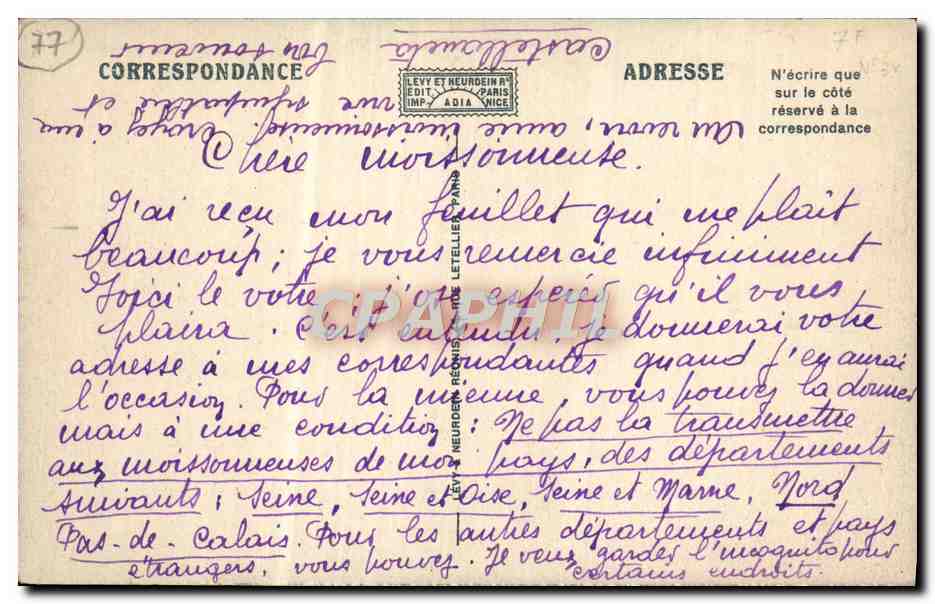 77
7F
CORRESPONDANCE
LEVY ET NEURDEIN Rs
EDIT PARIS
IMP ADIA NICE
ADRESSE
N'écrire que
sur le côté
réservé à la
correspondance
Chère moissonneuse.
J'ai reçu mon feuillet qui me plaît
beaucoup ; je vous remercie infiniment
Voici le votre, j'ose espérer qu'il vous
plaira. C'est entendu, je donnerai votre
adresse à mes correspondantes quand j'en aurai
l'occasion. Pour la mienne, vous pouvez la donner
mais à une condition : Ne pas la transmettre
aux moissonneuses de mon pays, des départements
suivants : Seine, Seine et Oise, Seine et Marne, Nord
Pas-de-Calais. Pour les autres départements et pays
étrangers, vous pouvez. Je veux garder l'incognito pour
certains endroits.
Au revoir, amie moissonneuse. Croyez à ma
vive sympathie et
bon souvenir
LÉVY & NEURDEIN RÉUNIS, 44, RUE LETELLIER, PARIS
CPARAMA